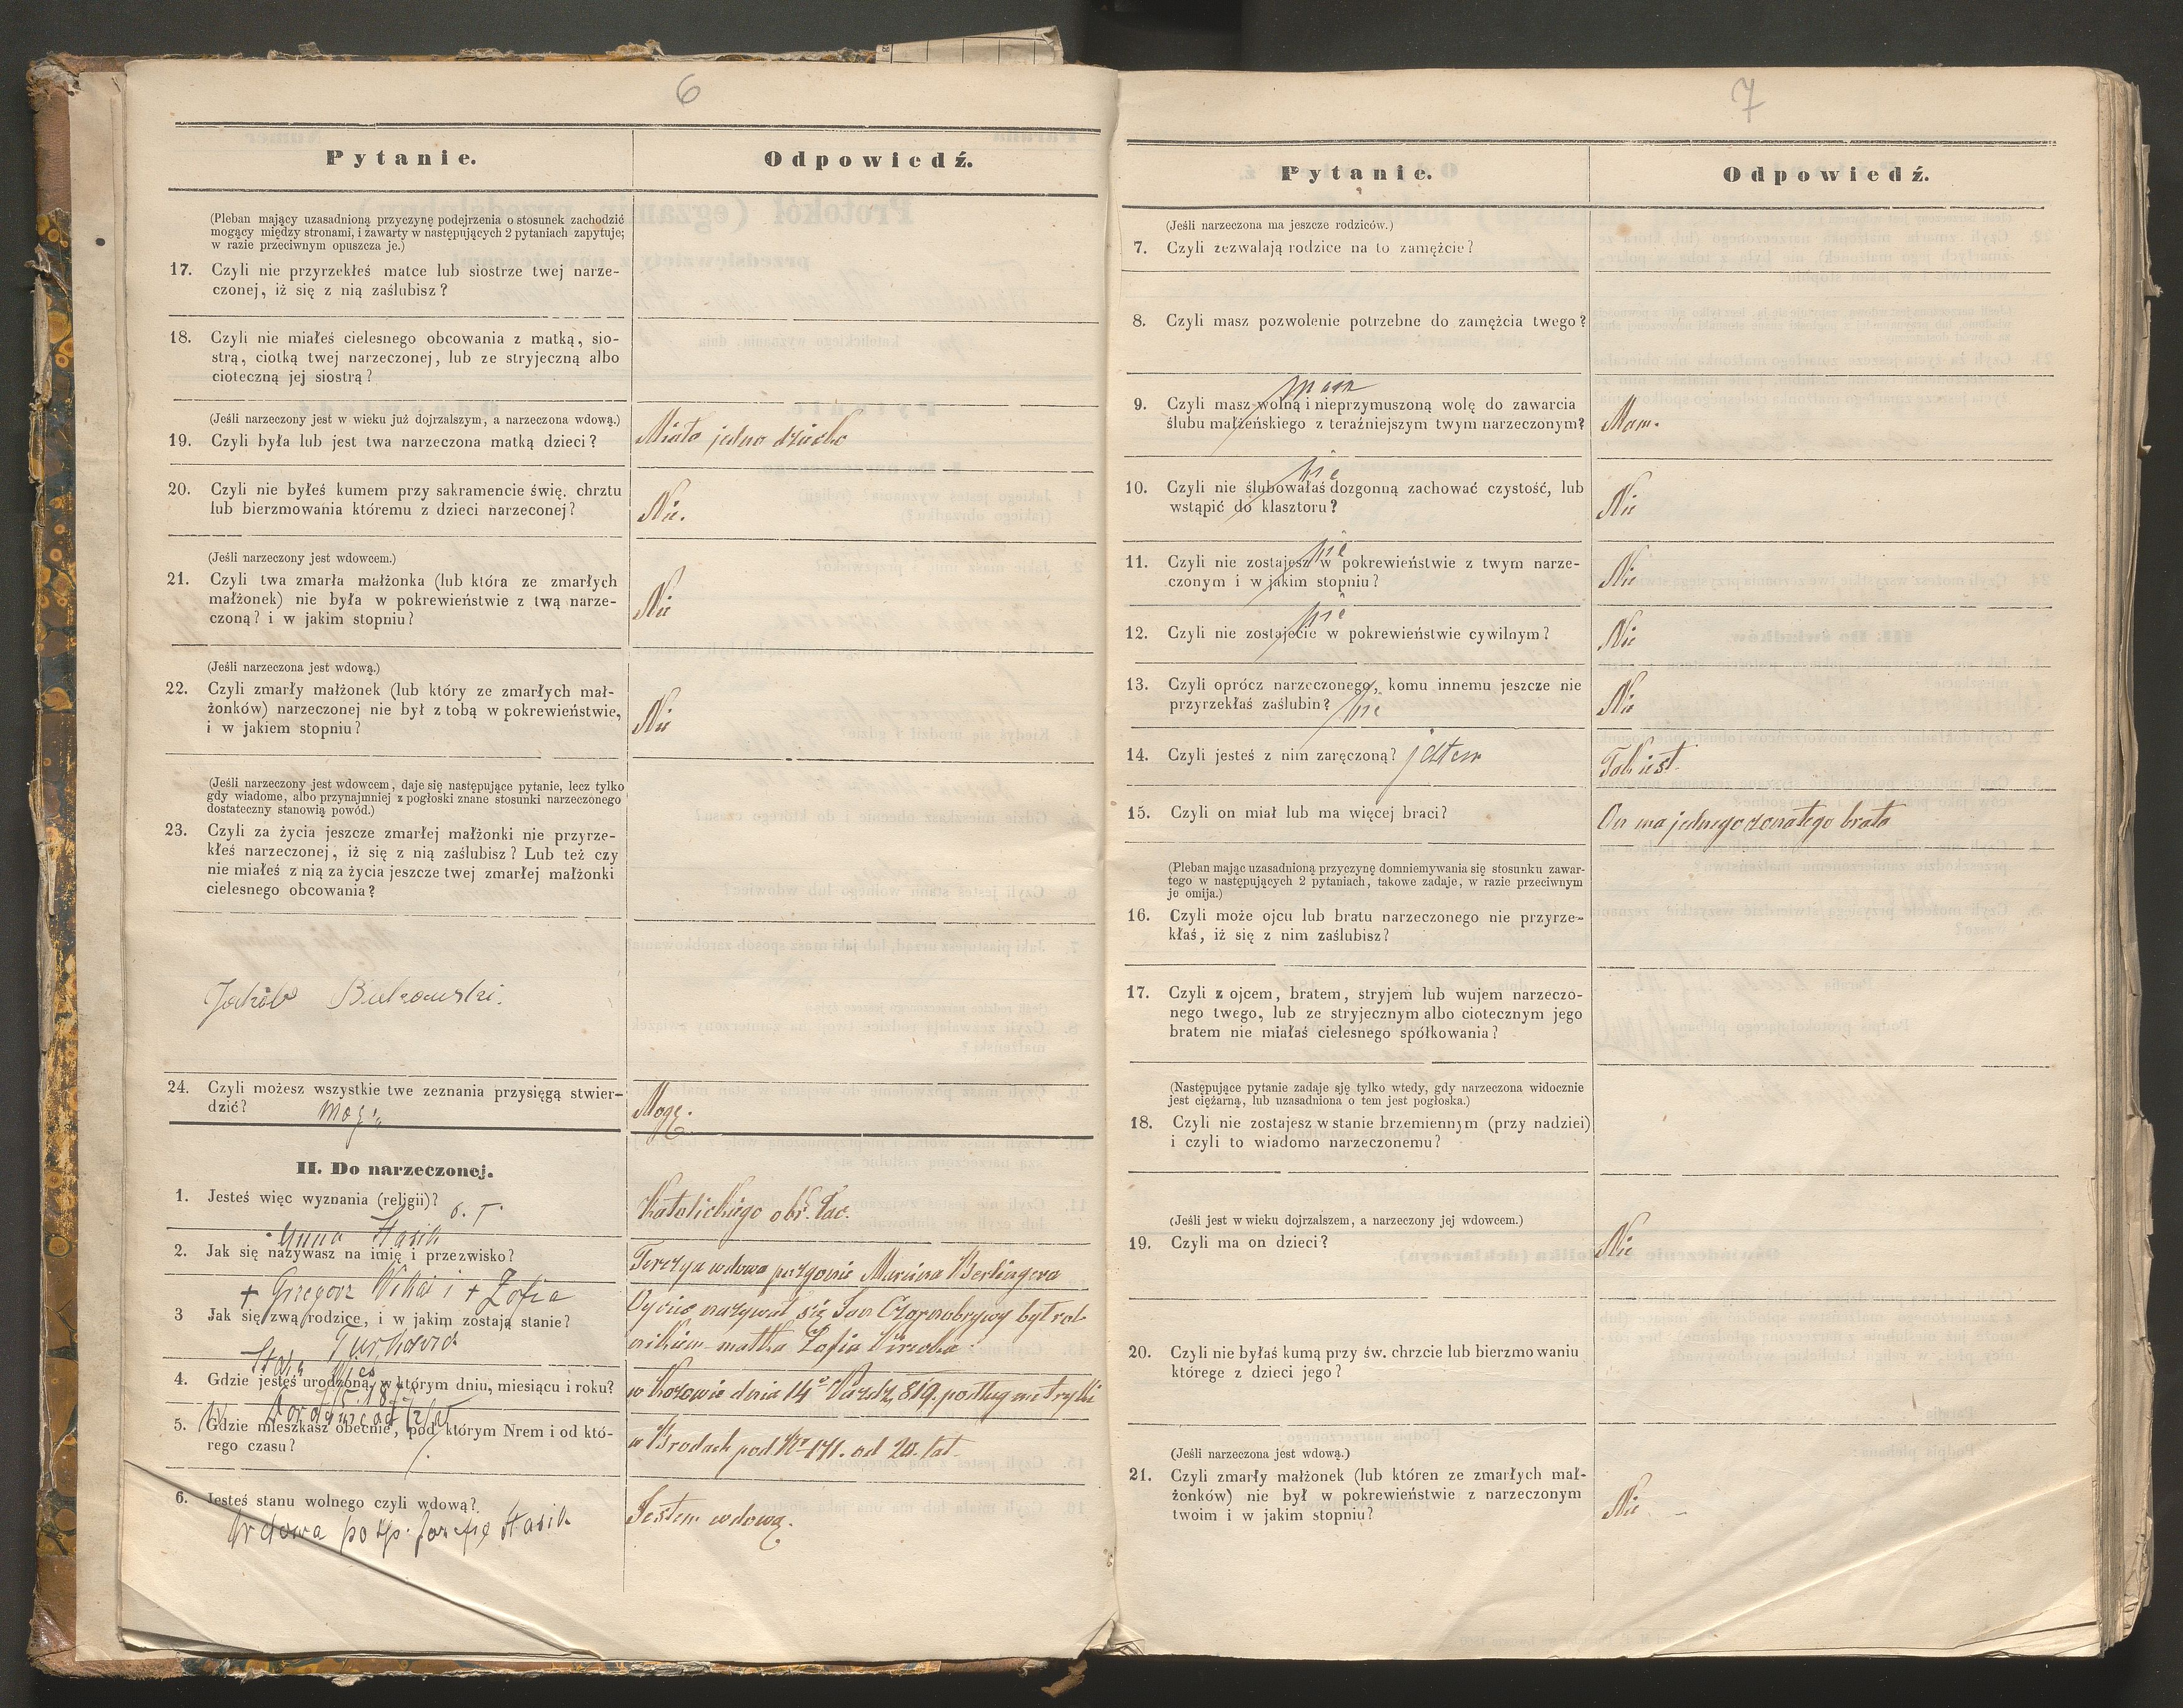 6
Pytanie.
Odpowiedź.
(Pleban mający uzasadnioną przyczynę podejrzenia o stosunek zachodzić
mogący między stronami, i zawarty w następujących 2 pytaniach zapytuje;
w razie przeciwnym opuszcza je.)
17. Czyli nie przyrzekłeś matce lub siostrze twej narze-
czonej, iż się z nią zaślubisz?
18. Czyli nie miałeś cielesnego obcowania z matką, sio-
strą, ciotką twej narzeczonej, lub ze stryjeczną albo
cioteczną jej siostrą?
(Jeśli narzeczony jest w wieku już dojrzalszym, a narzeczona wdową.)
19. Czyli była lub jest twa narzeczona matką dzieci?
Miała jedno dziecko
20. Czyli nie byłeś kumem przy sakramencie świę. chrztu
lub bierzmowania któremu z dzieci narzeconej?
Nie.
(Jeśli narzeczony jest wdowcem.)
21. Czyli twa zmarła małżonka (lub która ze zmarłych
małżonek) nie była w pokrewieństwie z twą narze-
czoną? i w jakim stopniu?
Nie
(Jeśli narzeczona jest wdową.)
22. Czyli zmarły małżonek (lub który ze zmarłych mał-
żonków) narzeczonej nie był z tobą w pokrewieństwie,
i w jakiem stopniu?
Nie
(Jeśli narzeczony jest wdowcem, daje się następujące pytanie, lecz tylko
gdy wiadome, albo przynajmniej z pogłoski znane stosunki narzeczonego
dostateczny stanowią powód.)
23. Czyli za życia jeszcze zmarłej małżonki nie przyrze-
kłeś narzeczonej, iż się z nią zaślubisz? Lub też czy
nie miałeś z nią za życia jeszcze twej zmarłej małżonki
cielesnego obcowania?
Jakób Bukowski.
24. Czyli możesz wszystkie twe zeznania przysięgą stwier-
dzić? Mogę
Mogę.
II. Do narzeczonej.
1. Jesteś więc wyznania (religii)?
Katolickiego obr. łac.
Anna Hasik
2. Jak się nazywasz na imię i przezwisko?
Terezya wdowa pozgonie Marcina Berlingera
+ Grzegorz i + Zofia
3 Jak się zwą rodzice, i w jakim zostają stanie?
Ojciec nazywał się Jan Czarnobrywy był rol-
nikiem matka Zofia
4. Gdzie jesteś urodzoną, w którym dniu, miesiącu i roku?
w dnia 14º Paźdz 819. podług metryki
5. Gdzie mieszkasz obecnie, pod którym Nrem i od któ-
rego czasu?
w Brodach pod Nr 171. od 20. lat
6. Jesteś stanu wolnego czyli wdową?
Wdowa po śp. Józefie Hasik
Jestem wdową.
7
Pytanie.
Odpowiedź.
(Jeśli narzeczona ma jeszcze rodziców.)
7. Czyli zezwalają rodzice na to zamężcie?
8. Czyli masz pozwolenie potrzebne do zamężcia twego?
mam
9. Czyli masz wolną i nieprzymuszoną wolę do zawarcia
ślubu małżeńskiego z teraźniejszym twym narzeczonym?
Mam.
nie
10. Czyli nie ślubowałaś dozgonną zachować czystość, lub
wstąpić do klasztoru?
Nie
nie
11. Czyli nie zostajesz w pokrewieństwie z twym narze-
czonym i w jakim stopniu?
Nie
nie
12. Czyli nie zostajecie w pokrewieństwie cywilnym?
Nie
13. Czyli oprócz narzeczonego, komu innemu jeszcze nie
przyrzekłaś zaślubin?
nie
Nie
14. Czyli jesteś z nim zaręczoną? jestem
Tak jest
15. Czyli on miał lub ma więcej braci?
On ma jednego żonatego brata
(Pleban mając uzasadnioną przyczynę domniemywania się stosunku zawar-
tego w następujących 2 pytaniach, takowe zadaje, w razie przeciwnym
je omija.)
16. Czyli może ojcu lub bratu narzeczonego nie przyrze-
kłaś, iż się z nim zaślubisz?
17. Czyli z ojcem, bratem, stryjem lub wujem narzeczo-
nego twego, lub ze stryjecznym albo ciotecznym jego
bratem nie miałaś cielesnego spółkowania?
(Następujące pytanie zadaje się tylko wtedy, gdy narzeczona widocznie
jest ciężarną, lub uzasadniona o tem jest pogłoska.)
18. Czyli nie zostajesz w stanie brzemiennym (przy nadziei)
i czyli to wiadomo narzeczonemu?
(Jeśli jest w wieku dojrzalszem, a narzeczony jej wdowcem.)
19. Czyli ma on dzieci?
Nie
20. Czyli nie byłaś kumą przy św. chrzcie lub bierzmowaniu
którego z dzieci jego?
(Jeśli narzeczona jest wdową.)
21. Czyli zmarły małżonek (lub któren ze zmarłych mał-
żonków) nie był w pokrewieństwie z narzeczonym
twoim i w jakim stopniu?
Nie